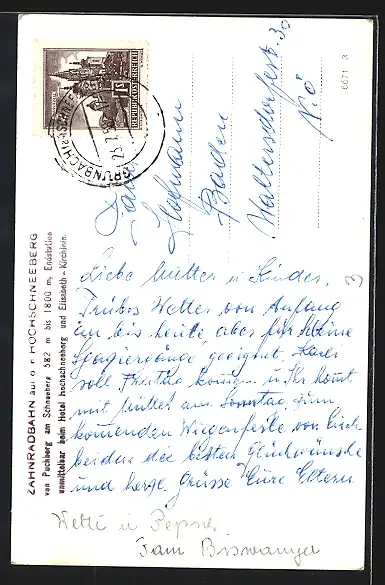 ZAHNRADBAHN auf d. HOCHSCHNEEBERG
von Puchberg am Schneeberg 582 m bis 1800 m, Endstation
unmittelbar beim Hotel Hochschneeberg und Elisabeth-Kirchlein.
REPUBLIK ÖSTERREICH
GRÜNBACH
Hofmann
Baden
Waltersdorferst. 30
N.Ö.
6671 3
Liebe Mutter u Kinder,
Trübes Wetter von Anfang
an bis heute, aber für kleine
Spaziergänge geeignet. Karli
soll Freitag kommen u Ihr kommt
mit Mutter am Sonntag. Zum
kommenden Wiegenfeste von Euch
beiden die besten Glückwünsche
und herzl. Grüsse Eure Eltern
3
Wetti u
Fam